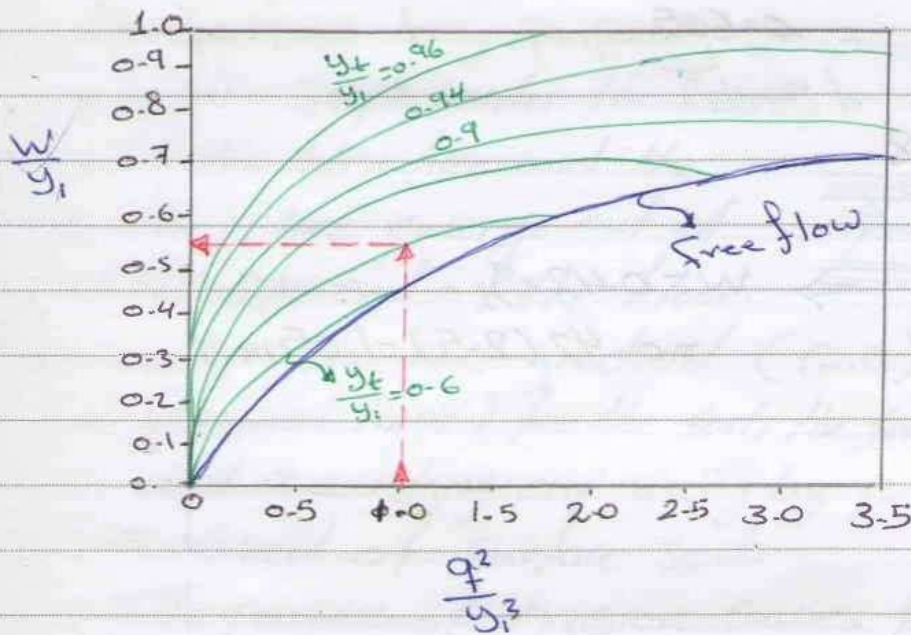 1.0
0.9
0.8
0.7
0.6
0.5
0.4
0.3
0.2
0.1
0
W
y₁
yt/y₁=0.96
0.94
0.9
free flow
yt/y₁=0.6
0 0.5 1.0 1.5 2.0 2.5 3.0 3.5
q²
y₁³